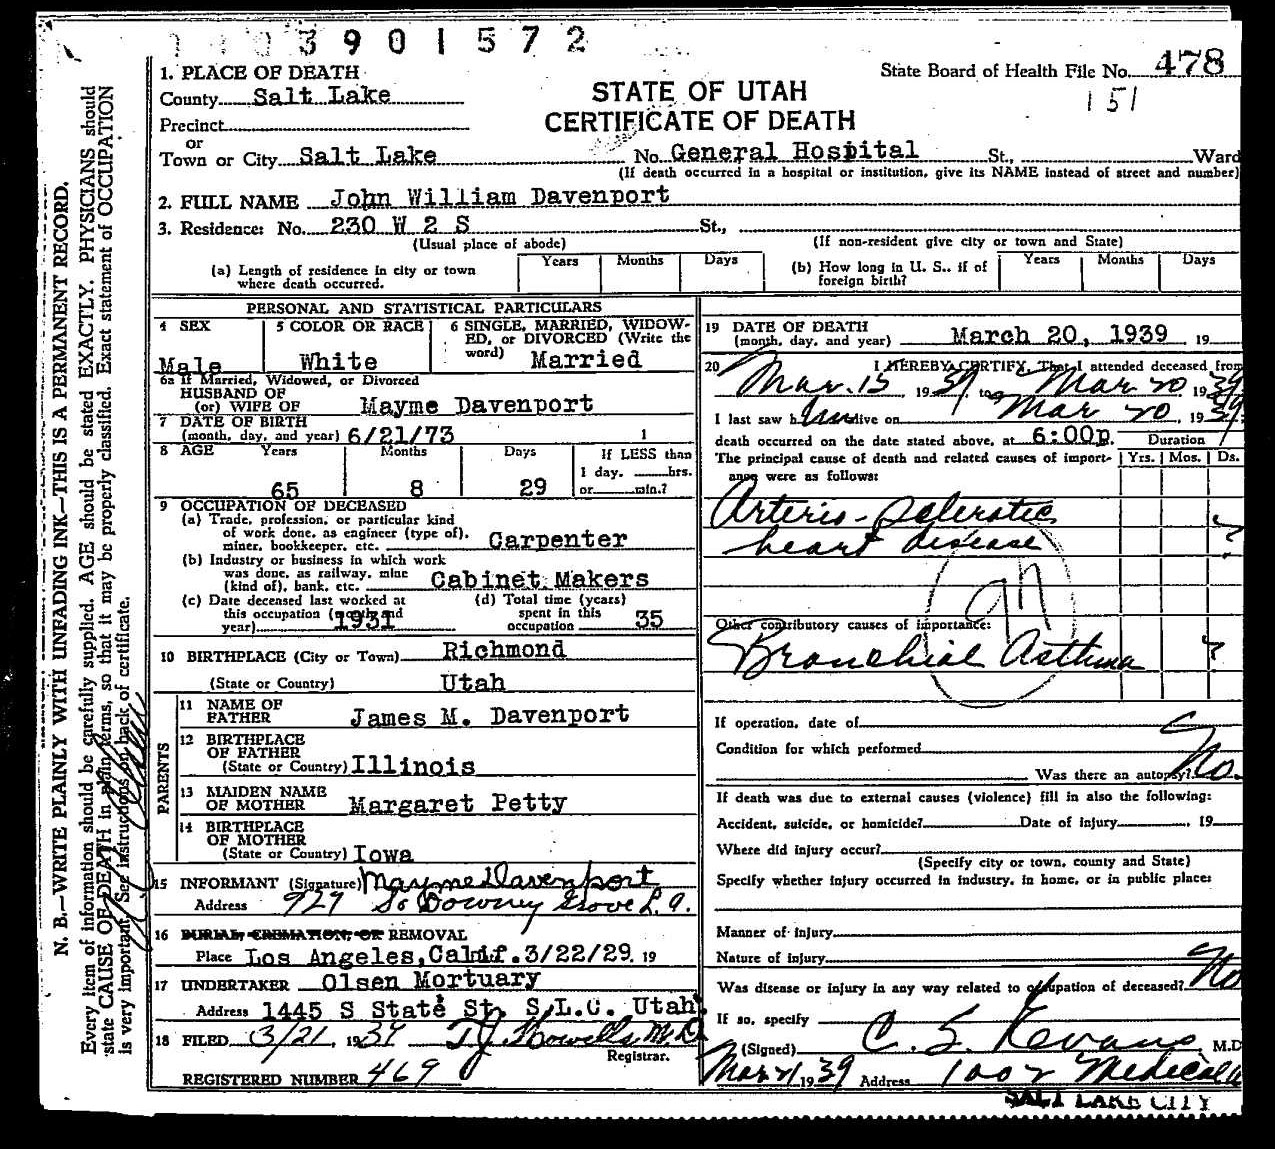 3901572
1. PLACE OF DEATH
State Board of Health File No. 478
151
County Salt Lake
STATE OF UTAH
CERTIFICATE OF DEATH
Precinct
or
Town or City Salt Lake No. General Hospital St., Ward
(If death occurred in a hospital or institution, give its NAME instead of street and number)
2. FULL NAME John William Davenport
3. Residence: No. 230 W 2 S St.,
(Usual place of abode) (If non-resident give city or town and State)
(a) Length of residence in city or town where death occurred. Years Months Days
(b) How long in U. S., if of foreign birth? Years Months Days
PERSONAL AND STATISTICAL PARTICULARS
4 SEX Male
5 COLOR OR RACE White
6 SINGLE, MARRIED, WIDOWED, OR DIVORCED (Write the word) Married
6a If Married, Widowed, or Divorced
HUSBAND OF
(or) WIFE OF Mayme Davenport
7 DATE OF BIRTH
(month, day, and year) 6/21/73 1
8 AGE Years 65 Months 8 Days 29
If LESS than
1 day, hrs.
or min.?
9 OCCUPATION OF DECEASED
(a) Trade, profession, or particular kind
of work done, as engineer (type of),
miner, bookkeeper, etc. Carpenter
(b) Industry or business in which work
was done, as railway, mine
(kind of), bank, etc. Cabinet Makers
(c) Date deceased last worked at
this occupation (month and
year) 1931
(d) Total time (years)
spent in this
occupation 35
10 BIRTHPLACE (City or Town) Richmond
(State or Country) Utah
PARENTS
11 NAME OF
FATHER James M. Davenport
12 BIRTHPLACE
OF FATHER
(State or Country) Illinois
13 MAIDEN NAME
OF MOTHER Margaret Petty
14 BIRTHPLACE
OF MOTHER
(State or Country) Iowa
15 INFORMANT (Signature) Mayme Davenport
Address 927 So Downey Grove L.A.
16 BURIAL, CREMATION, OR REMOVAL
Place Los Angeles, Calif. 3/22/29. 19
17 UNDERTAKER Olsen Mortuary
Address 1445 S State St. S.L.C. Utah
18 FILED 3/21, 1939 T.J. Howells M.D
Registrar.
REGISTERED NUMBER 469
19 DATE OF DEATH
(month, day, and year) March 20, 1939 19
20 I HEREBY CERTIFY, That I attended deceased from
Mar. 15 1939, to Mar 20, 1939
I last saw him alive on Mar 20, 1939,
death occurred on the date stated above, at 6:00p. Duration
The principal cause of death and related causes of import- Yrs. Mos. Ds.
ance were as follows:
Arterio-sclerotic ?
heart disease
Other contributory causes of importance:
Bronchial Asthma ?
If operation, date of
Condition for which performed
Was there an autopsy? No.
If death was due to external causes (violence) fill in also the following:
Accident, suicide, or homicide? Date of injury , 19
Where did injury occur?
(Specify city or town, county and State)
Specify whether injury occurred in industry, in home, or in public place:
Manner of injury
Nature of injury
Was disease or injury in any way related to occupation of deceased? No
If so, specify
(Signed) C. S. Kevans, M.D
Mar 21 1939 Address 1002 Medical
SALT LAKE CITY
N. B.—WRITE PLAINLY WITH UNFADING INK—THIS IS A PERMANENT RECORD.
Every item of information should be carefully supplied. AGE should be stated EXACTLY. PHYSICIANS should
state CAUSE OF DEATH in plain terms, so that it may be properly classified. Exact statement of OCCUPATION
is very important. See instructions on back of certificate.